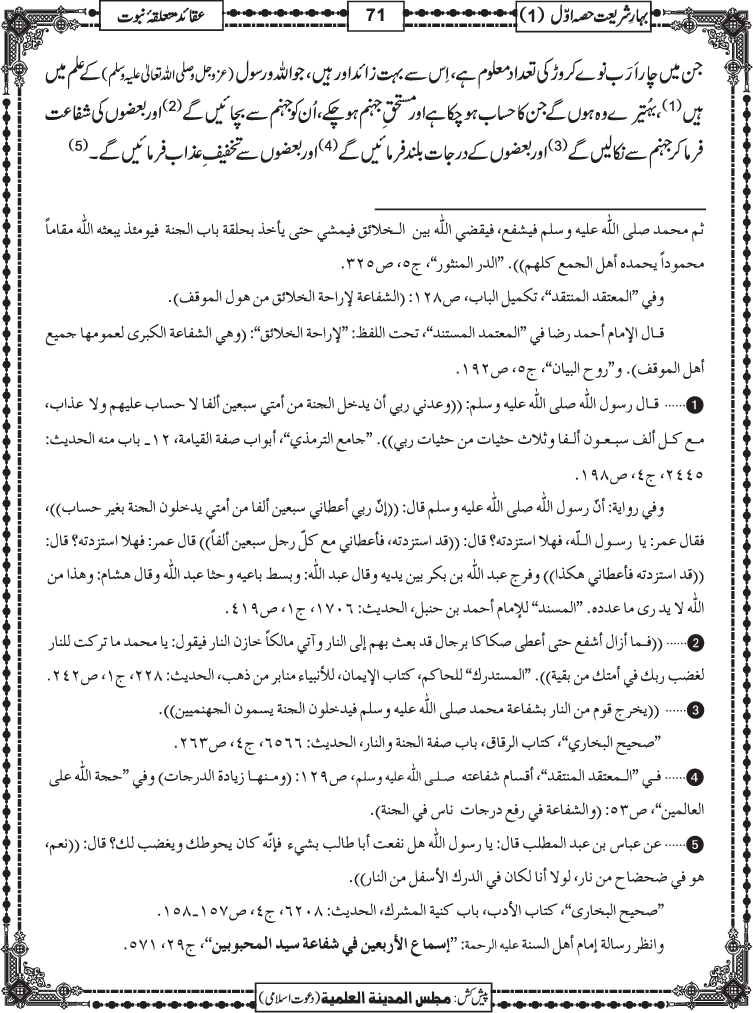 بہارِ شریعت حصہ اوّل (1)
71
عقائد متعلقۂ نبوت
جن میں چار اَرَب نوے کروڑ کی تعداد معلوم ہے، اِس سے بہت زائد اور ہیں، جو اللہ و رسول (عزوجل وصلی اللہ تعالیٰ علیہ وسلم) کے علم میں
ہیں (1)، بہُتیرے وہ ہوں گے جن کا حساب ہوچکا ہے اور مستحقِ جہنم ہوچکے، اُن کو جہنم سے بچائیں گے (2) اور بعضوں کی شفاعت
فرما کر جہنم سے نکالیں گے (3) اور بعضوں کے درجات بلند فرمائیں گے (4) اور بعضوں سے تخفیفِ عذاب فرمائیں گے۔ (5)
ثم محمد صلى الله عليه وسلم فيشفع، فيقضي الله بين الخلائق فيمشي حتى يأخذ بحلقة باب الجنة فيومئذ يبعثه الله مقاماً
محموداً يحمده أهل الجمع كلهم)). ”الدر المنثور“، ج٥، ص٣٢٥.
وفي ”المعتقد المنتقد“، تكميل الباب، ص١٢٨: (الشفاعة لإراحة الخلائق من هول الموقف).
قال الإمام أحمد رضا في ”المعتمد المستند“، تحت اللفظ: ”لإراحة الخلائق“: (وهي الشفاعة الكبرى لعمومها جميع
أهل الموقف). و”روح البيان“، ج٥، ص١٩٢.
1 ...... قال رسول الله صلى الله عليه وسلم: ((وعدني ربي أن يدخل الجنة من أمتي سبعين ألفا لا حساب عليهم ولا عذاب،
مع كل ألف سبعون ألفا وثلاث حثيات من حثيات ربي)). ”جامع الترمذي“، أبواب صفة القيامة، ١٢ـ باب منه الحديث:
٢٤٤٥، ج٤، ص١٩٨.
وفي رواية: أنّ رسول الله صلى الله عليه وسلم قال: ((إنّ ربي أعطاني سبعين ألفا من أمتي يدخلون الجنة بغير حساب))،
فقال عمر: يا رسول الله، فهلا استزدته؟ قال: ((قد استزدته، فأعطاني مع كلّ رجل سبعين ألفاً)) قال عمر: فهلا استزدته؟ قال:
((قد استزدته فأعطاني هكذا)) وفرج عبد الله بن بكر بين يديه وقال عبد الله: وبسط باعيه وحثا عبد الله وقال هشام: وهذا من
الله لا يدرى ما عدده. ”المسند“ للإمام أحمد بن حنبل، الحديث: ١٧٠٦، ج١، ص٤١٩.
2 ...... ((فما أزال أشفع حتى أعطى صكاكا برجال قد بعث بهم إلى النار وآتي مالكاً خازن النار فيقول: يا محمد ما تركت للنار
لغضب ربك في أمتك من بقية)). ”المستدرك“ للحاكم، كتاب الإيمان، للأنبياء منابر من ذهب، الحديث: ٢٢٨، ج١، ص٢٤٢.
3 ...... ((يخرج قوم من النار بشفاعة محمد صلى الله عليه وسلم فيدخلون الجنة يسمون الجهنميين)).
”صحيح البخاري“، كتاب الرقاق، باب صفة الجنة والنار، الحديث: ٦٥٦٦، ج٤، ص٢٦٣.
4 ...... في ”المعتقد المنتقد“، أقسام شفاعته صلى الله عليه وسلم، ص١٢٩: (ومنها زيادة الدرجات) وفي ”حجة الله على
العالمين“، ص٥٣: (والشفاعة في رفع درجات ناس في الجنة).
5 ...... عن عباس بن عبد المطلب قال: يا رسول الله هل نفعت أبا طالب بشيء فإنّه كان يحوطك ويغضب لك؟ قال: ((نعم،
هو في ضحضاح من نار، لولا أنا لكان في الدرك الأسفل من النار)).
”صحيح البخارى“، كتاب الأدب، باب كنية المشرك، الحديث: ٦٢٠٨، ج٤، ص١٥٧ـ١٥٨.
وانظر رسالة إمام أهل السنة عليه الرحمة: ”إسماع الأربعين في شفاعة سيد المحبوبين“، ج٢٩، ٥٧١.
پیش کش: مجلس المدينة العلمية (دعوت اسلامی)